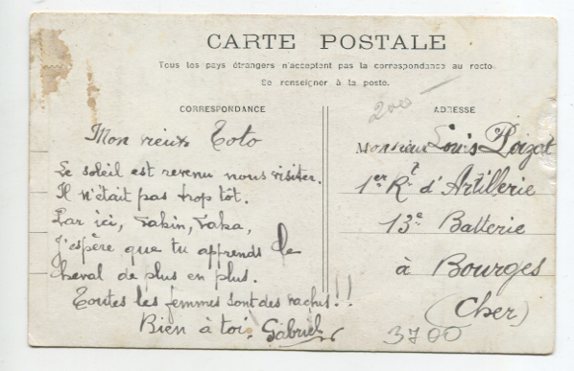 CARTE POSTALE
Tous les pays étrangers n'acceptent pas la correspondance au recto
Se renseigner à la poste.
CORRESPONDANCE
ADRESSE
200
Mon vieux Toto
Le soleil est revenu nous visiter.
Il n'était pas trop tôt.
Par ici, Sakin, Saka,
J'espère que tu apprends le
cheval de plus en plus.
Toutes les femmes sont des vaches!!
Bien à toi. Gabriel
Monsieur Louis Poizat
1er Rt d'Artillerie
13e Batterie
à Bourges
(Cher)
3700